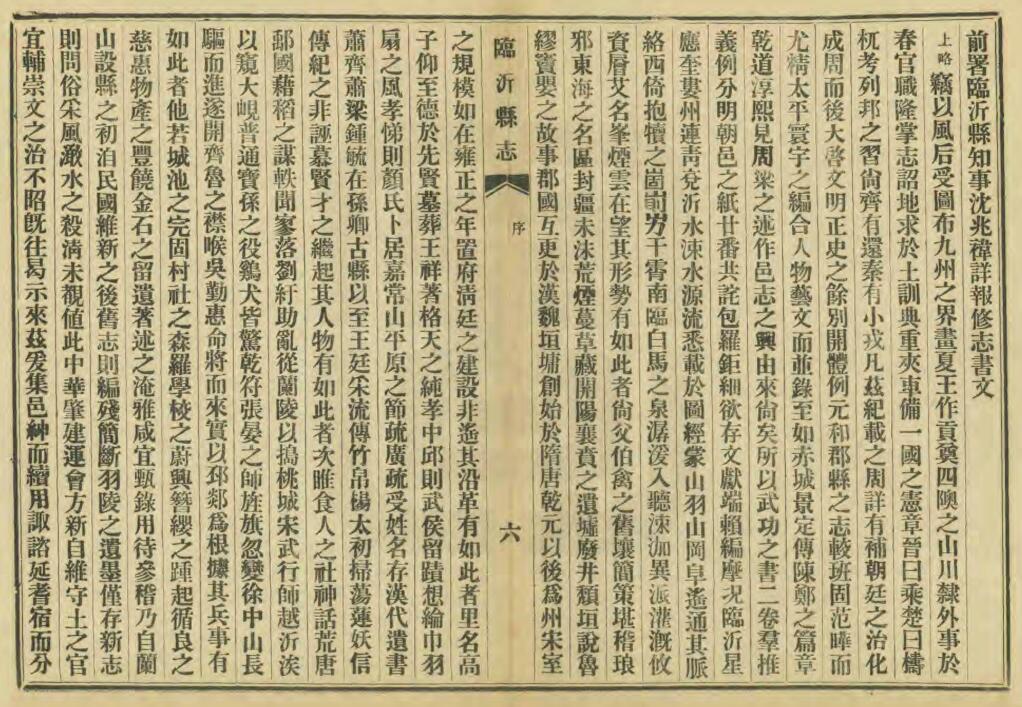 前署臨沂縣知事沈兆禕詳報修志書文
上略竊以風后受圖布九州之界畫夏王作貢奠四隩之山川隸外事於
春官職隆掌志詔地求於土訓典重夾車備一國之憲章晉曰乘楚曰檮
杌考列邦之習尙齊有還秦有小戎凡茲紀載之周詳有補朝廷之治化
成周而後大啓文明正史之餘別開體例元和郡縣之志較班固范曄而
尤精太平寰宇之編合人物藝文而並錄至如赤城景定傳陳鄭之篇章
乾道淳熙見周梁之述作邑志之興由來尙矣所以武功之書二卷羣推
義例分明朝邑之紙廿番共詫包羅鉅細欲存文獻端賴編摩况臨沂星
應奎婁州連靑兗沂水涑水源流悉載於圖經蒙山羽山岡阜遙通其脈
絡西倚抱犢之崮前勞干霄南臨白馬之泉潺湲入聽涑泇異派灌溉攸
資層艾名峯煙雲在望其形勢有如此者尙父伯禽之舊壤簡策堪稽琅
邪東海之名區封疆未沫荒煙蔓草藏開陽襄賁之遺墟廢井頹垣說魯
繆竇嬰之故事郡國互更於漢魏垣墉創始於隋唐乾元以後爲州宋室
臨沂縣志
序
六
之規模如在雍正之年置府淸廷之建設非遙其沿革有如此者里名高
子仰至德於先賢墓葬王祥著格天之純孝中邱則武侯留蹟想綸巾羽
扇之風孝悌則顏氏卜居嘉常山平原之節疏廣疏受姓名存漢代遺書
蕭齊蕭梁鍾毓在孫卿古縣以至王廷采流傳竹帛楊太初掃蕩蓮妖信
傳紀之非誣慕賢才之繼起其人物有如此者次睢食人之社神話荒唐
鄅國藉稻之謀軼聞寥落劉紆助亂從蘭陵以搗桃城宋武行師越沂涘
以窺大峴普通寶孫之役鷄犬皆驚乾符張晏之師旌旗忽變徐中山長
驅而進遂開齊魯之襟喉吳勤惠命將而來實以邳郯爲根據其兵事有
如此者他若城池之完固村社之森羅學校之蔚興簪纓之踵起循良之
慈惠物產之豐饒金石之留遺著述之淹雅咸宜甄錄用待參稽乃自蘭
山設縣之初洎民國維新之後舊志則編殘簡斷羽陵之遺墨僅存新志
則問俗采風瀲水之殺淸未覩値此中華肇建運會方新自維守土之官
宜輔崇文之治不昭旣往曷示來茲爰集邑紳而續用諏諮延耆宿而分